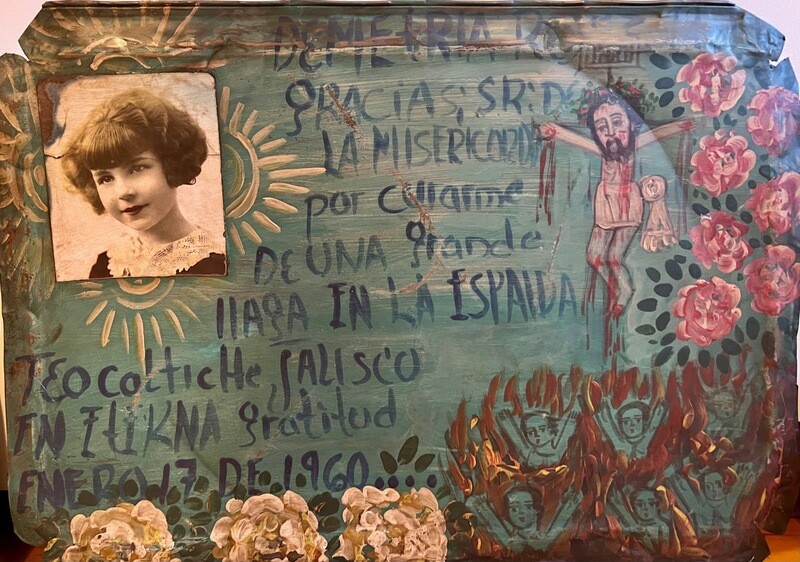 DEMETRIA
GRACIAS, SR: D
LA MISERICORDI
por cUrarme
DE UNA grande
llAgA EN LA ESPALDA
TEOcaltIcHe, JALISCO
EN ETERNA gratitud
ENERO 17 DE 1.960....